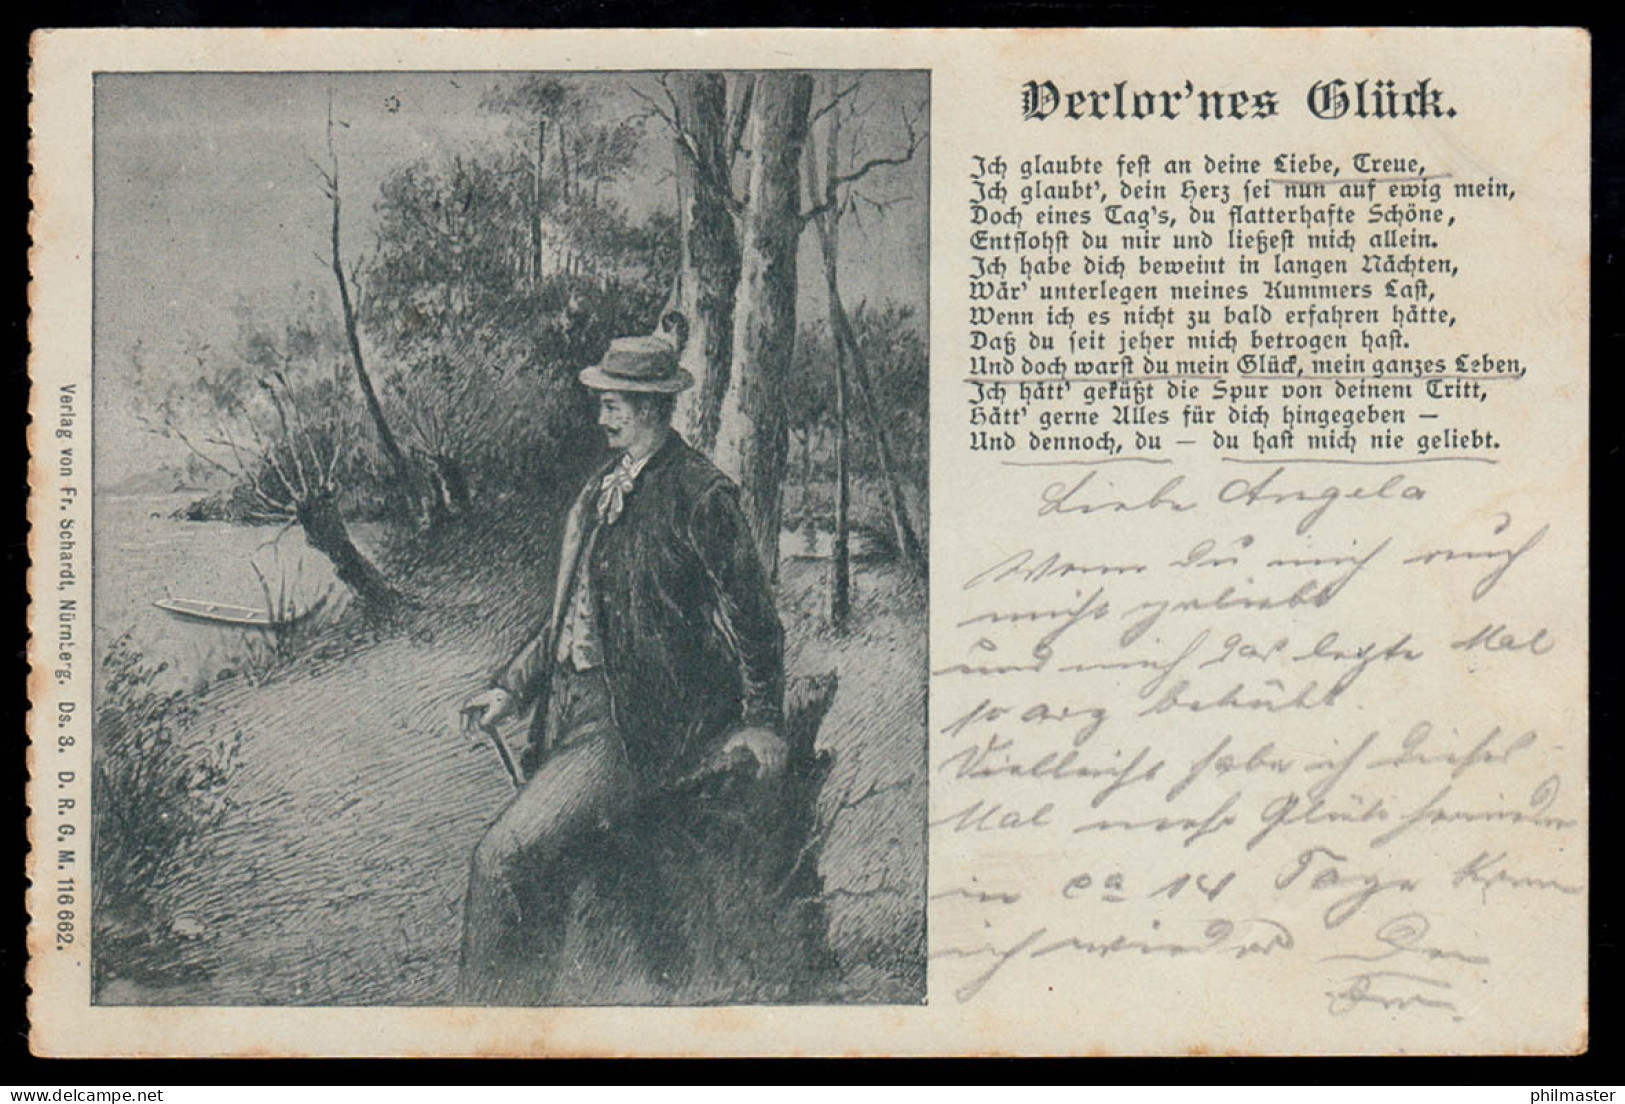 Verlor'nes Glück.
Ich glaubte fest an deine Liebe, Treue,
Ich glaubt', dein Herz sei nun auf ewig mein,
Doch eines Tag's, du flatterhafte Schöne,
Entflohst du mir und ließest mich allein.
Ich habe dich beweint in langen Nächten,
Wär' unterlegen meines Kummers Last,
Wenn ich es nicht zu bald erfahren hätte,
Daß du seit jeher mich betrogen hast.
Und doch warst du mein Glück, mein ganzes Leben,
Ich hätt' geküßt die Spur von deinem Tritt,
Hätt' gerne Alles für dich hingegeben —
Und dennoch, du — du hast mich nie geliebt.
Liebe Angela
Wenn Du mich auch
nicht geliebt
und mich das letzte Mal
so arg
Vielleicht habe ich dieses
Mal mehr Glück
in ca 14 Tage
ich wieder Dein
Verlag von Fr. Schardt, Nürnberg. Ds. 3. D. R. G. M. 116 662.
philmaster